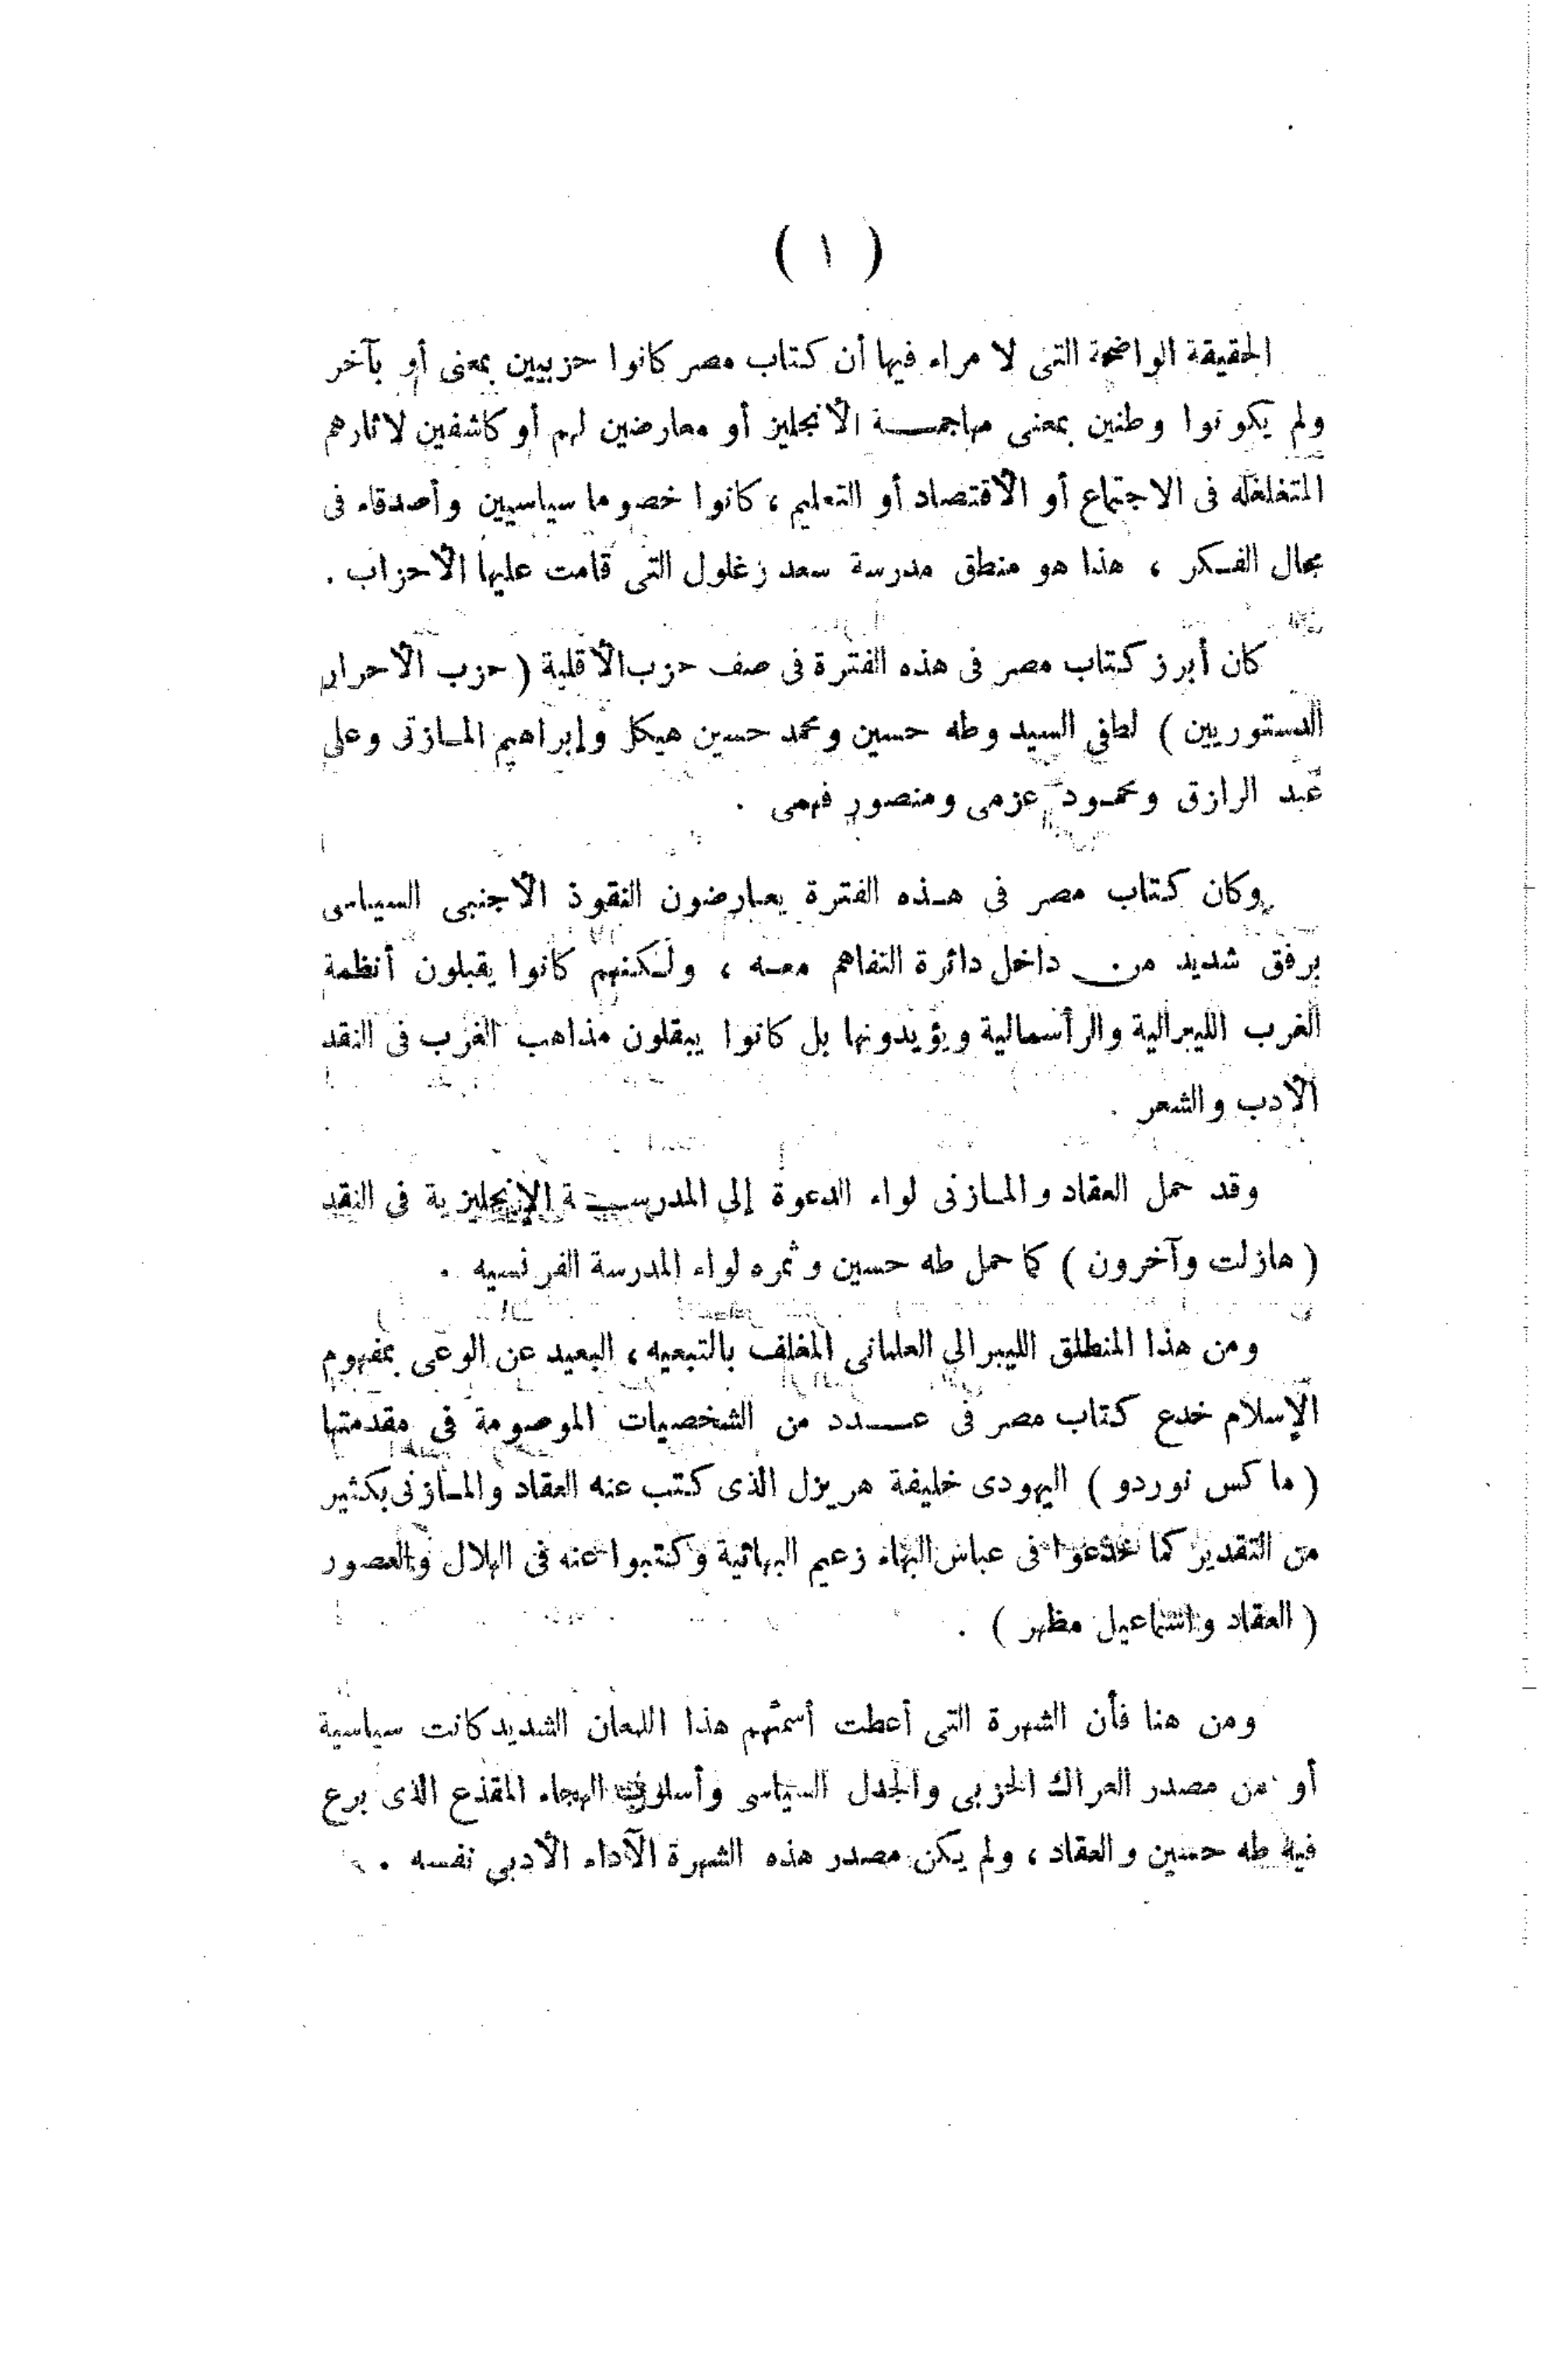 ( ١ )
الحقيقة الواضحة التى لا مراء فيها أن كتاب مصر كانوا حزبيين بمعنى أو بآخر
ولم يكونوا وطنين بمعنى مهاجمة الأنجليز أو معارضين لهم أو كاشفين لاثارهم
المتغلغله فى الاجتماع أو الاقتصاد أو التعليم ، كانوا خصوما سياسيين وأصدقاء فى
مجال الفكر ، هذا هو منطق مدرسة سعد زغلول التى قامت عليها الأحزاب .
كان أبرز كتاب مصر فى هذه الفترة فى صف حزب الأقلية ( حزب الأحرار
الدستوريين ) لطفي السيد وطه حسين ومحمد حسين هيكل وإبراهيم المازنى وعلى
عبد الرازق ومحمود عزمى ومنصور فهمى .
وكان كتاب مصر فى هذه الفترة يعارضون النفوذ الأجنبى السياسى
برفق شديد من داخل دائرة التفاهم معه ، ولكنهم كانوا يقبلون أنظمة
الغرب الليبرالية والرأسمالية ويؤيدونها بل كانوا يبقلون مذاهب الغرب فى النقد
الأدب والشعر .
وقد حمل العقاد والمازنى لواء الدعوة إلى المدرسة الإنجليزية فى النقد
( هازلت وآخرون ) كما حمل طه حسين وثمره لواء المدرسة الفرنسيه .
ومن هذا المنطلق الليبرالي العلمانى المغلف بالتبعيه ، البعيد عن الوعى بمفهوم
الإسلام خدع كتاب مصر فى عدد من الشخصيات الموصومة فى مقدمتها
( ماكس نوردو ) اليهودى خليفة هريزل الذى كتب عنه العقاد والمازنى بكثير
من التقدير كما خدعوا فى عباس البهاء زعيم البهائية وكتبوا عنه فى الهلال والعصور
( العقاد واسماعيل مظهر ) .
ومن هنا فأن الشهرة التى أعطت أسمئهم هذا اللمعان الشديد كانت سياسية
أو من مصدر العراك الحزبى والجدل السياسى وأسلوب الهجاء المقذع الذى برع
فيه طه حسين والعقاد ، ولم يكن مصدر هذه الشهرة الآداء الأدبى نفسه .